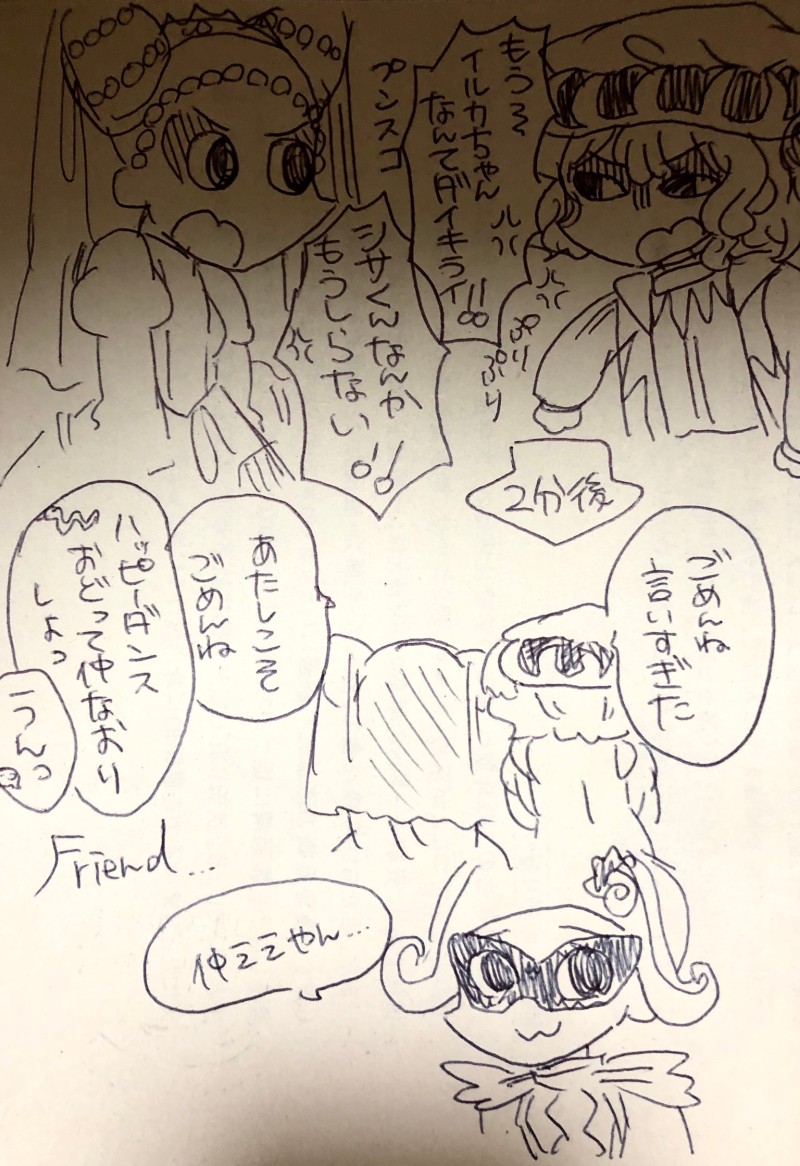 もう〜
イルカちゃん
なんてダイキライ!!
プンスコ
ぷりぷり
シサくんなんか
もうしらない!!
2分後
ごめんね
言いすぎた
あたしこそ
ごめんね
ハッピーダンス
おどって仲なおり
しよっ
うんっ
Friend...
仲ミミやん...